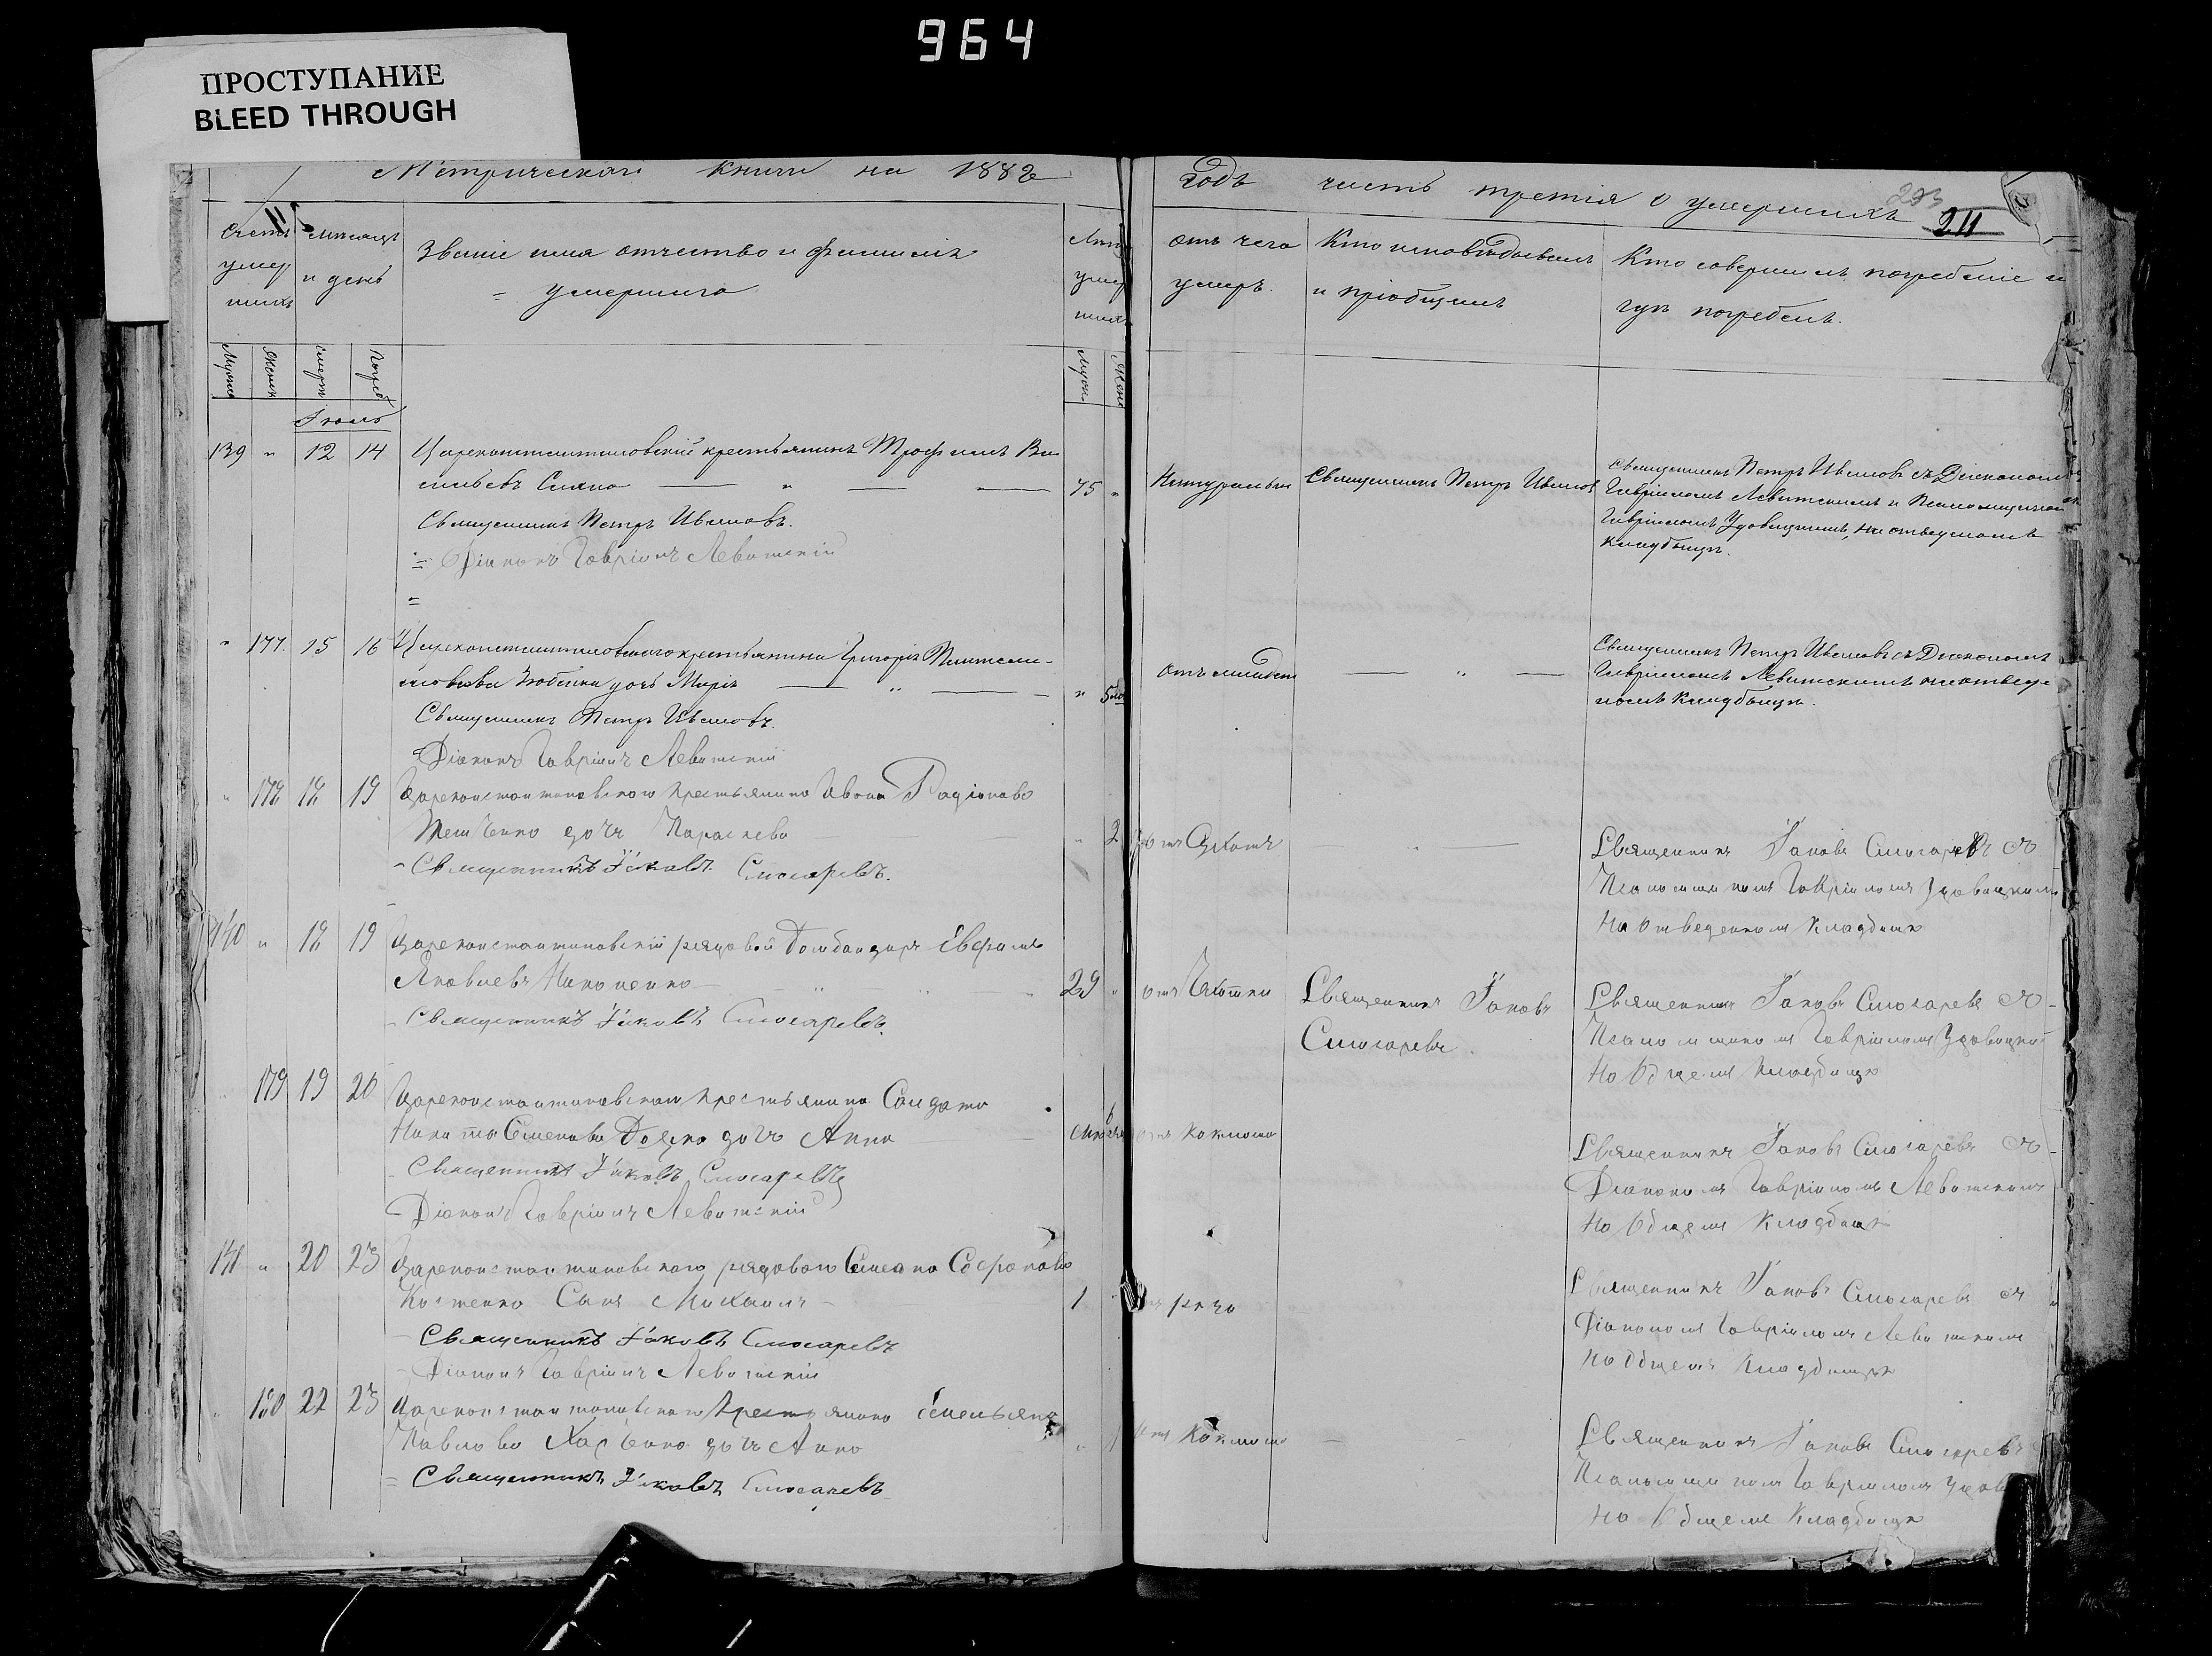 964
ПРОСТУПАНИЕ
BLEED THROUGH
Метрической книги на 1882
Годъ часть третія о умершихъ
211
Счетъ умершихъ
мѣсяцъ и день
Званіе имя отчество и фамилія
умершаго
Лѣта умершихъ
отъ чего умеръ.
Кто исповѣдывалъ и пріобщилъ
Кто совершилъ погребеніе и
гдѣ погребенъ.
Іюль
139 " 12 14 Цареконстантиновскій крестьянинъ Трофимъ Ва-
сильевъ 75 "
Натуральн Священникъ Петръ Ивановъ
Священникъ Петръ Ивановъ съ Діакономъ
Гавріиломъ Левитскимъ и Псаломщикомъ
Гавріиломъ Удовицкимъ, на отведеномъ
кладбищѣ.
Священникъ Петръ Ивановъ.
= Діаконъ Гавріилъ Левитскій
=
" 177. 15 16 Цареконстантиновского крестьянина Григорія
дочь Марія " 5
Священникъ Петръ Ивановъ съ Діакономъ
Гавріиломъ Левитскимъ на отведе-
номъ кладбищѣ.
Священникъ Петръ Ивановъ.
Діаконъ Гавріилъ Левитскій
" 178 18 19 Цареконстантиновского крестьянина Ивана Радіонова
дочь Параскева " 2
Священникъ Іаковъ Слюсаревъ съ
Псаломщикомъ Гавріиломъ Удовицкимъ
На отведенномъ Кладбищѣ
Священникъ Іаковъ Слюсаревъ.
140 " 18 19 Цареконстантиновскій рядовой Бомбандиръ Евфимъ
Яковлевъ Никоненко 29 "
отъ Чахотки Священникъ Іаковъ
Слюсаревъ.
Священникъ Іаковъ Слюсаревъ съ
Псаломщикомъ Гавріиломъ Удовицким
На Общемъ Кладбищѣ
Священникъ Іаковъ Слюсаревъ.
179 19 20 Цареконстантиновскаго крестьянина Солдата
Никита Семенова дочь Анна
отъ Коклюша
Священникъ Іаковъ Слюсаревъ съ
Діакономъ Гавріиломъ Левитскимъ
На Общемъ Кладбищѣ
Священникъ Іаковъ Слюсаревъ
Діаконъ Гавріилъ Левитскій
141 " 20 23 Цареконстантиновскаго рядового Семена Софронова
Костенко Сынъ Михаилъ 1 "
Священникъ Іаковъ Слюсаревъ съ
Діакономъ Гавріиломъ Левитскимъ
На Общемъ Кладбищѣ
Священникъ Іаковъ Слюсаревъ
Діаконъ Гавріилъ Левитскій
" 180 22 23 Цареконстантиновскаго Крестьянина Емельяна
Павлова Харченко дочь Анна " 1
отъ Коклюша
Священникъ Іаковъ Слюсаревъ
Псаломщикомъ Гавріиломъ
На Общемъ Кладбищѣ
= Священникъ Іаковъ Слюсаревъ